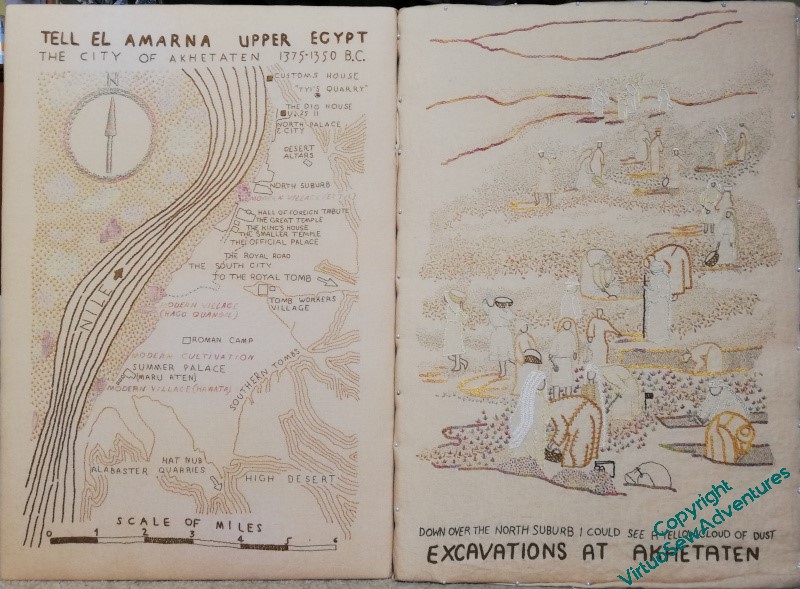 TELL EL AMARNA UPPER EGYPT
THE CITY OF AKHETATEN 1375-1350 B.C.
N
CUSTOMS HOUSE
"TYI'S QUARRY"
THE DIG HOUSE
NORTH PALACE
& CITY
DESERT
ALTARS
NORTH SUBURB
HALL OF FOREIGN TRIBUTE
THE GREAT TEMPLE
THE KING'S HOUSE
THE SMALLER TEMPLE
THE OFFICIAL PALACE
THE ROYAL ROAD
THE SOUTH CITY
TO THE ROYAL TOMB
TOMB WORKERS
VILLAGE
NILE
MODERN VILLAGE
ROMAN CAMP
MODERN CULTIVATION
SUMMER PALACE
(MARU ATEN)
MODERN VILLAGE
SOUTHERN TOMBS
HAT NUB
ALABASTER QUARRIES
HIGH DESERT
SCALE OF MILES
0 1 2 3 4 5 6
DOWN OVER THE NORTH SUBURB I COULD SEE A YELLOW CLOUD OF DUST
EXCAVATIONS AT AKHETATEN
Copyright
VirtuoSewAdventures